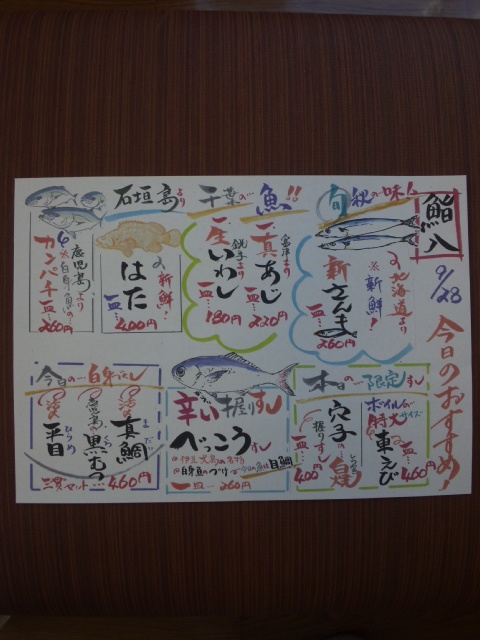 鮨八
9/28
今日のおすすめ!
旬 秋の味!
北海道より
※新鮮!
新さんま
一皿…260円
千葉の魚!!
富津より
真あじ
一皿…220円
銚子より
生いわし
一皿…180円
石垣島より
新鮮!
はた
一皿…400円
鹿児島より
カンパチ
一皿…260円
本日の限定すし
ボイルの
特大サイズ
車えび
一皿…460円
穴子の
握りずし
一皿…400円
辛い握すし
べっこうすし
◎伊豆大島の名物
◎白身魚のづけ
今日の魚は目鯛
一皿…260円
今日の白身づくし
真鯛
まだい
鹿児島の
黒むつ
平目
ひらめ
三貫セット…460円